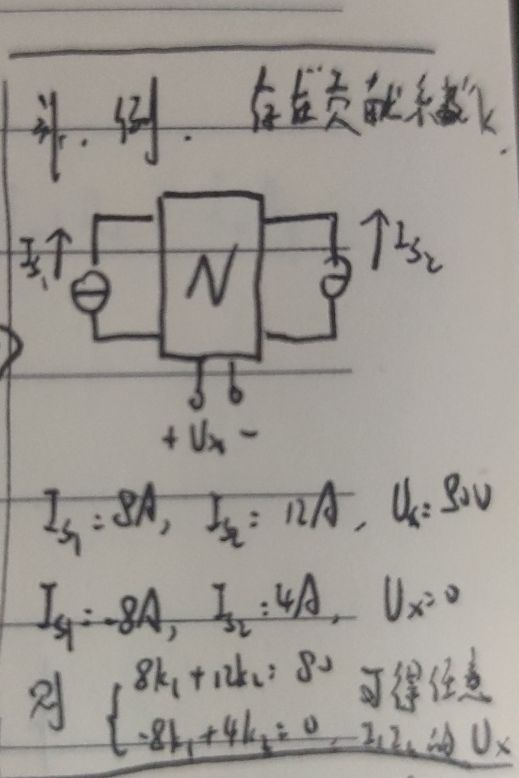 例. 存在贡献系数k.
I_{S1}↑ N ↑I_{S2}
+ Ux -
I_{S1}=8A, I_{S2}=12A, Ux=80V
I_{S1}=-8A, I_{S2}=4A, Ux=0
则 { 8k₁+12k₂=80 可得任意
-8k₁+4k₂=0. I₁I₂的Ux